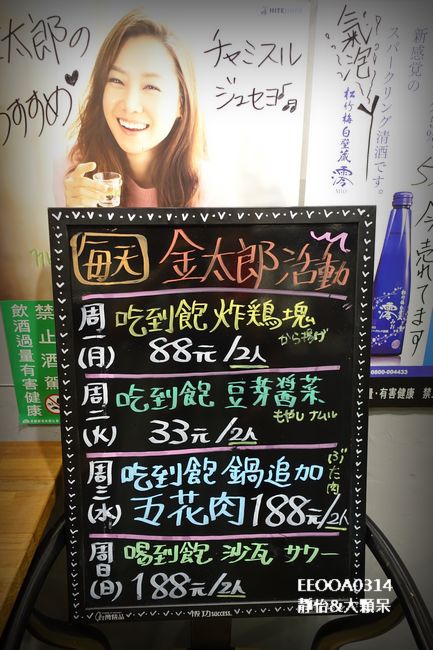 HITEJINRO
太郎の
おすすめ
チャミスル
ジュセヨ
氣泡
松竹梅白壁蔵 澪
新感覚の
スパークリング清酒です。
今売れてます
澪
0800-004433
禁止酒駕
飲酒過量有害健康
有害健康
每天 金太郎 活動
周一(月) 吃到飽 炸鶏塊
から揚げ
88元/2人
周二(火) 吃到飽 豆芽醬菜
もやしナムル
33元/2人
周三(水) 吃到飽 鍋追加
ぶた肉
五花肉 188元/2人
周日(日) 喝到飽 沙瓦 サワー
188元/2人
台灣精品
成功 SUCCESS
EEOOA0314
靜怡&大顆呆